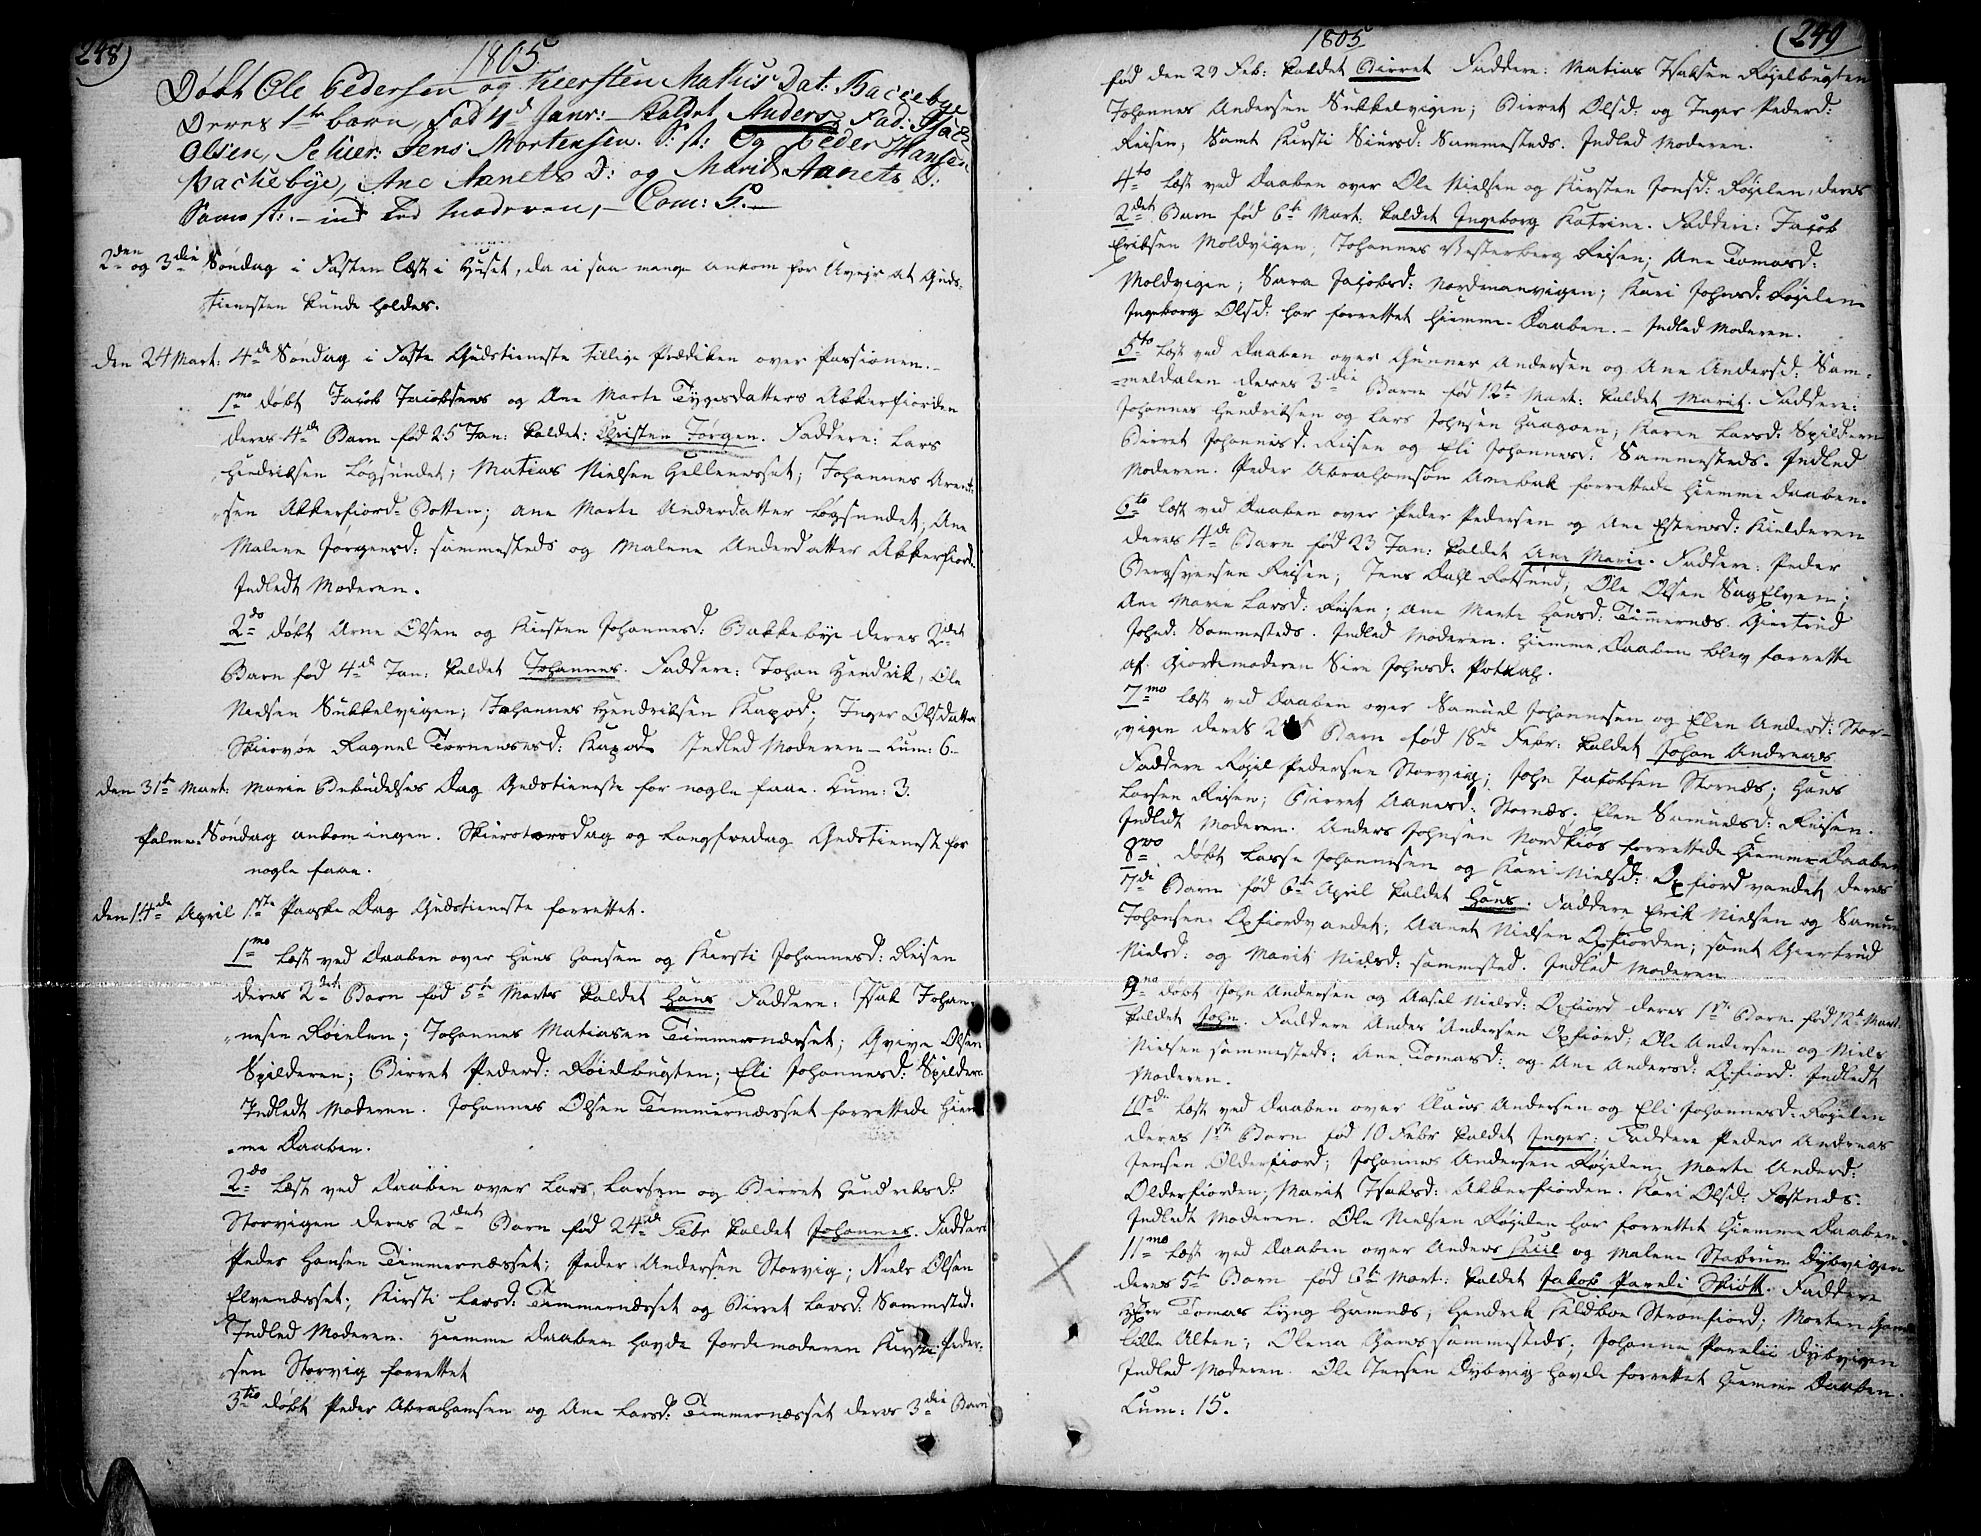 248)
1805
Døbt Ole Pedersen og Kiersten Mathis Dat: Backebye
Deres 1te barn, fød 4d Janr: — kaldet Anders, Fad: Isac
Olsen, Jens Mortensen. S: st: Og Peder Hansen
Backebye, Ane Aanets D: og Marit Aanets D:
Sam st: — ind led Moderen, — Com: 5. —
2den og 3die Søndag i Fasten læst i Huset, da ei saa mange ankom for Uveir at Guds-
tienesten kunde holdes.
den 24 Mart: 4de Søndag i Faste Gudstieneste tillige Prædiken over Passionen. —
1mo døbt Jacob Jacobsens og Ane Marte Tygesdatters Akkerfiorden
deres 4de Barn fød 25 Jan: kaldet: Christen Jørgen. Faddere: Lars
Hendriksen Løgsundet; Matias Nielsen Hellenesset; Johannes Arent-
sen Akkerfiord-Botten; Ane Marte Andersdatter Løgsundet, Ane
Malene Jørgensd: sammesteds og Malene Andersdatter Akkerfiord.
Indledt Moderen.
2do døbt Arne Olsen og Kirsten Johannesd: Bakkebye deres 2det
Barn fød 4de Jan: kaldet Johannes. Faddere: Johan Hendrik, Ole
Nielsen Sukkelvigen; Johannes Hendriksen Kagod; Inger Olsdatter
Skiervøe Ragnel Kagod Indled Moderen — Com: 6 —
den 31te Mart: Mariæ Bebudelses Dag Gudstieneste for nogle faae. Com: 3.
Palme-Søndag ankom ingen. Skiertorsdag og Langfredag Gudstieneste for
nogle faae.
den 14de April 1ste Paaske Dag Gudstieneste forrettet.
1mo Læst ved Daaben over Hans Hansen og Kirsti Johannesd: Reisen
deres 2det Barn fød 5te Marts kaldet Hans Faddere: Isak Johan-
nesen Røielen; Johannes Matiasen Timmernæsset; Qvive Olsen
Spilderen; Birret Pedersd: Røielbugten; Eli Johannesd: Spilderen.
Indledt Moderen. Johannes Olsen Timmernæsset forrettede Hiem-
me Daaben.
2do Læst ved Daaben over Lars Larsen og Birret Hendriksd:
Storvigen deres 2det Barn fød 24de Febr kaldet Johannes. Faddere
Peder Hansen Timmernæsset; Peder Andersen Storvig; Niels Olsen
Elvenæsset; Kirsti Larsd: Timmernæsset og Birret Larsd: Sammested.
Indled Moderen. Hiemme Daaben havde Jordemoderen Kirsti Peder-
sen Storvig forrettet
3tio døbt Peder Abrahamsen og Ane Larsd: Timmernæsset deres 3die Barn
1805
(249
fød den 29 Feb: kaldet Birret Faddere: Matias Isaksen Røielbugten
Johannes Andersen Sukkelvigen; Birret Olsd: og Inger Pedersd:
Reisen, Samt Kirsti Siursd: Sammesteds. Indled Moderen.
4to Læst ved Daaben over Ole Nielsen og Kirsten Jonsd: Røielen, deres
2det Barn fød 6te Mart: kaldet Ingeborg Katrine. Faddere: Jacob
Eriksen Moldvigen; Johannes Vesterberg Reisen; Ane Tomasd:
Moldvigen; Sara Jacobsd: Nordmanvigen; Kari Johnsd: Røielen
Ingeborg Olsd: har forrettet Hiemme-Daaben. — Indled Moderen.
5to Læst ved Daaben over Gunner Andersen og Ane Andersd: Sam-
meldalen deres 3die Barn fød 12te Mart: kaldet Marit. Faddere:
Johannes Hendriksen og Lars Johnsen Haagoen; Karen Larsd: Spilderen
Birret Johannesd: Reisen og Eli Johannesd: Sammesteds. Indled
Moderen. Peder Abrahamsen forrettede Hiemme Daaben.
6to Læst ved Daaben over Peder Pedersen og Ane Estensd: Kielderen
deres 4de Barn fød 23 Jan: kaldet Ane Marie. Faddere: Peder
Bergsvensen Reisen; Jens Dahl Rotsund; Ole Olsen SagElven;
Ane Marie Larsd: Reisen; Ane Marte Hansd: Timmernæs. Giertrud
Johnd: Sammesteds. Indled Moderen. Hiemme Daaben blev forrettet
af Giordemoderen Sire Johnsd:
7mo Læst ved Daaben over Samuel Johannesen og Elen Andersd: Stor-
vigen deres 2det Barn fød 18de Febr: kaldet Johan Andreas
Faddere Pedersen Storvig; John Jacobsen Stornæs; Hans
Larsen Reisen; Birret Stornæs. Elen Samuelsd: Reisen.
Indledt Moderen. Anders Johnsen Nordkiøs forrettede Hiemme Daaben
8vo døbt Lasse Johannesen og Kari Nielsd: Oxfiordvandet deres
7de Barn fød 6te April kaldet Hans. Faddere Erik Nielsen og Samuel
Johansen Oxfiordvandet; Aanet Nielsen Oxfiorden; samt Giertrud
Nielsd: og Marit Nielsd: sammested. Indled Moderen
9no døbt John Andersen og Aasel Nielsd: Oxfiord deres 1ste Barn fød 12te Mart.
kaldet John. Faddere Anders Andersen Oxfiord; Ole Andersen og Niels
Nielsen sammesteds; Ane Tomasd: og Ane Andersd: Oxfiord. Indledt
Moderen.
10de Læst ved Daaben over Claus Andersen og Eli Johannesd: Røielen
deres 1ste Barn fød 10 Febr kaldet Inger: Faddere Peder Andreas
Jensen Olderfiord; Johannes Andersen Røielen Marte Andersd:
Olderfiorden; Marit Isaksd: Akkerfiorden. Kari Olsd:
Indledt Moderen. Ole Nielsen Røielen har forrettet Hiemme Daaben.
11mo Læst ved Daaben over Anders og Malene Dybvigen
deres 5te Barn fød 6te Mart: kaldet Jakob Pareli Skiøtt. Faddere
Tomas Lyng Hamnæs; Hendrik Kildboe Strømfiord; Morten
Lille Alten; Olena sammesteds; Johanna Parelii Dybvigen
Indled Moderen. Ole Jensen Dybvig havde forrettet Hiemme Daaben.
Com: 15.